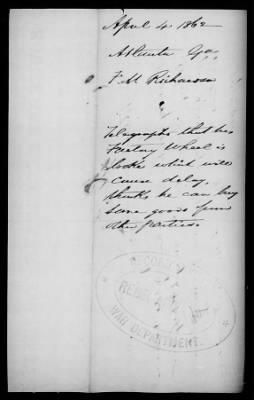 April 4 1862
Atlanta Ga,
F. M. Richardson
Telegraphs that his
Factory Wheel is
broke which will
cause delay,
thinks he can buy
some goods from
other parties.
RECORD
REBEL
WAR DEPARTMENT.